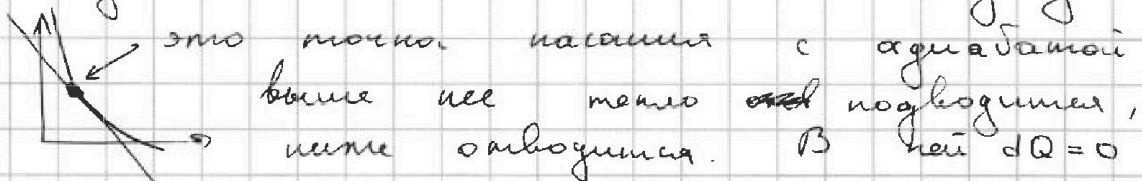 это точка касания с адиабатой
выше неё тепло подводится,
ниже отводится. В ней dQ = 0